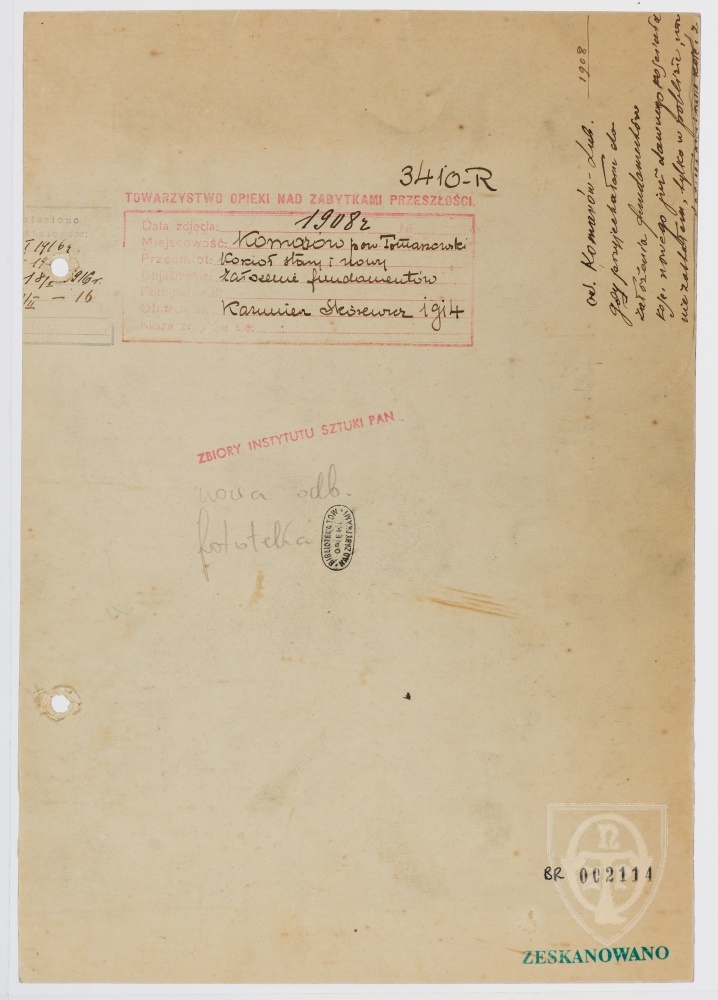 3410-R
TOWARZYSTWO OPIEKI NAD ZABYTKAMI PRZESZŁOŚCI.
Data zdjęcia: 1908 r
Miejscowość: Komorow pow. Tomaszowski
Przedmiot: Kościół stary i nowy
założenie fundamentów
Kazimierz Skórewicz 1914
1916 r.
18/ 1916 r.
— 16
1908
od. Komarów - Lub.
gdy przyjechałem do
założenia fundamentów
koś. nowego już dawnego kościoła
nie zastałem, tylko w pobliżu
ZBIORY INSTYTUTU SZTUKI PAN
nowa odb.
fototeka
BIBLIOTEKA TOW.
OPIEKI
NAD ZABYTKAMI
BR 002114
ZESKANOWANO